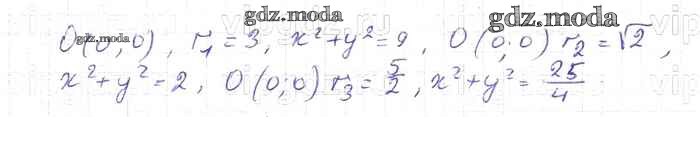 gdz.moda
gdz.moda gdz.moda
O(0;0), r₁ = 3, x² + y² = 9, O(0;0) r₂ = √2,
x² + y² = 2, O(0;0) r₃ = 5/2, x² + y² = 25/4
gdz.moda